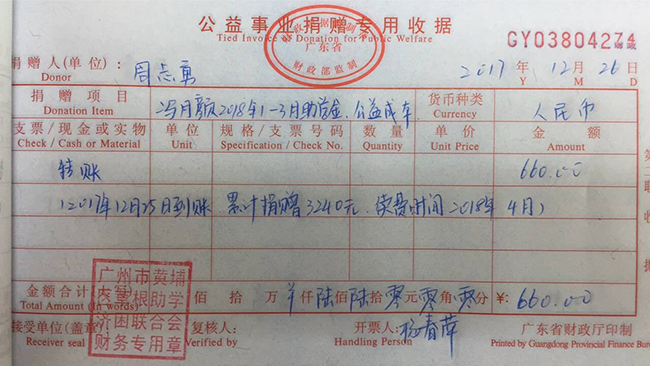 公益事业捐赠专用收据
Tied Invoice of Donation for Public Welfare
广东省
财政部监制
GY03804274
捐赠人(单位): 周志勇 2017 年 12 月 26 日
Donor Y M D
捐赠项目 冯月颜2018年1-3月助学金.公益成车 货币种类 人民币
Donation Item Currency
支票/现金或实物 单位 规格/支票号码 数量 单价 金额
Check / Cash or Material Unit Specification / Check No. Quantity Unit Price Amount
转账 660.00
(2017年12月25日到账. 累计捐赠3240元. 续费时间2018年4月)
金额合计(大写) 佰 拾 万 仟陆佰陆拾零元零角零分 ¥: 660.00
Total Amount (In words)
广州市黄埔
区 根助学
济困联合会
财务专用章
接受单位(盖章) 复核人: 开票人: 杨春萍 广东省财政厅印制
Receiver seal Verified by Handling Person Printed by Guangdong Provincial Finance Bureau